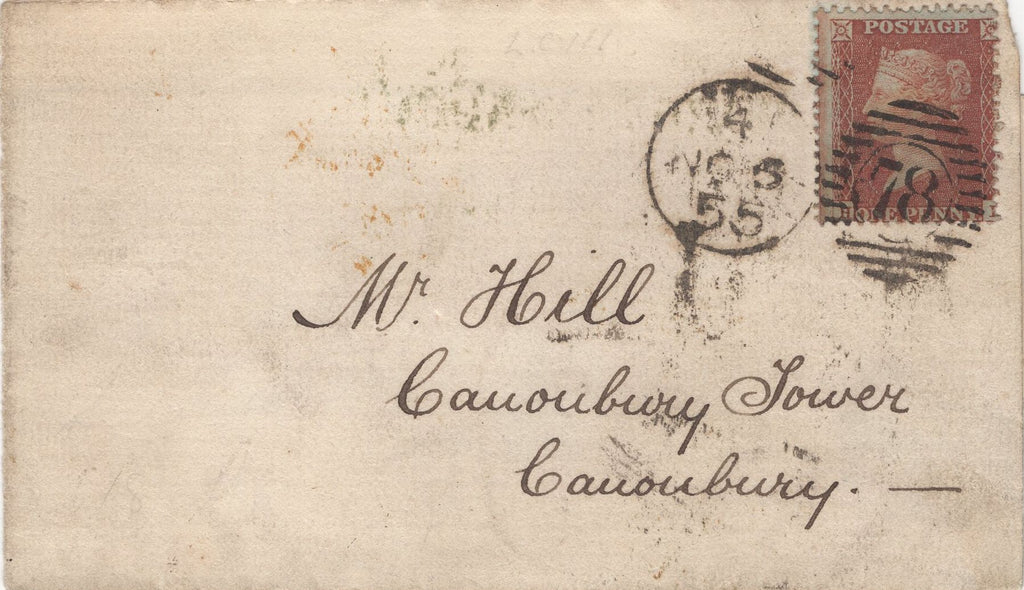 POSTAGE
14
NO 6
55
78
ONE PENNY
Mr. Hill
Canonbury Tower
Canonbury. —